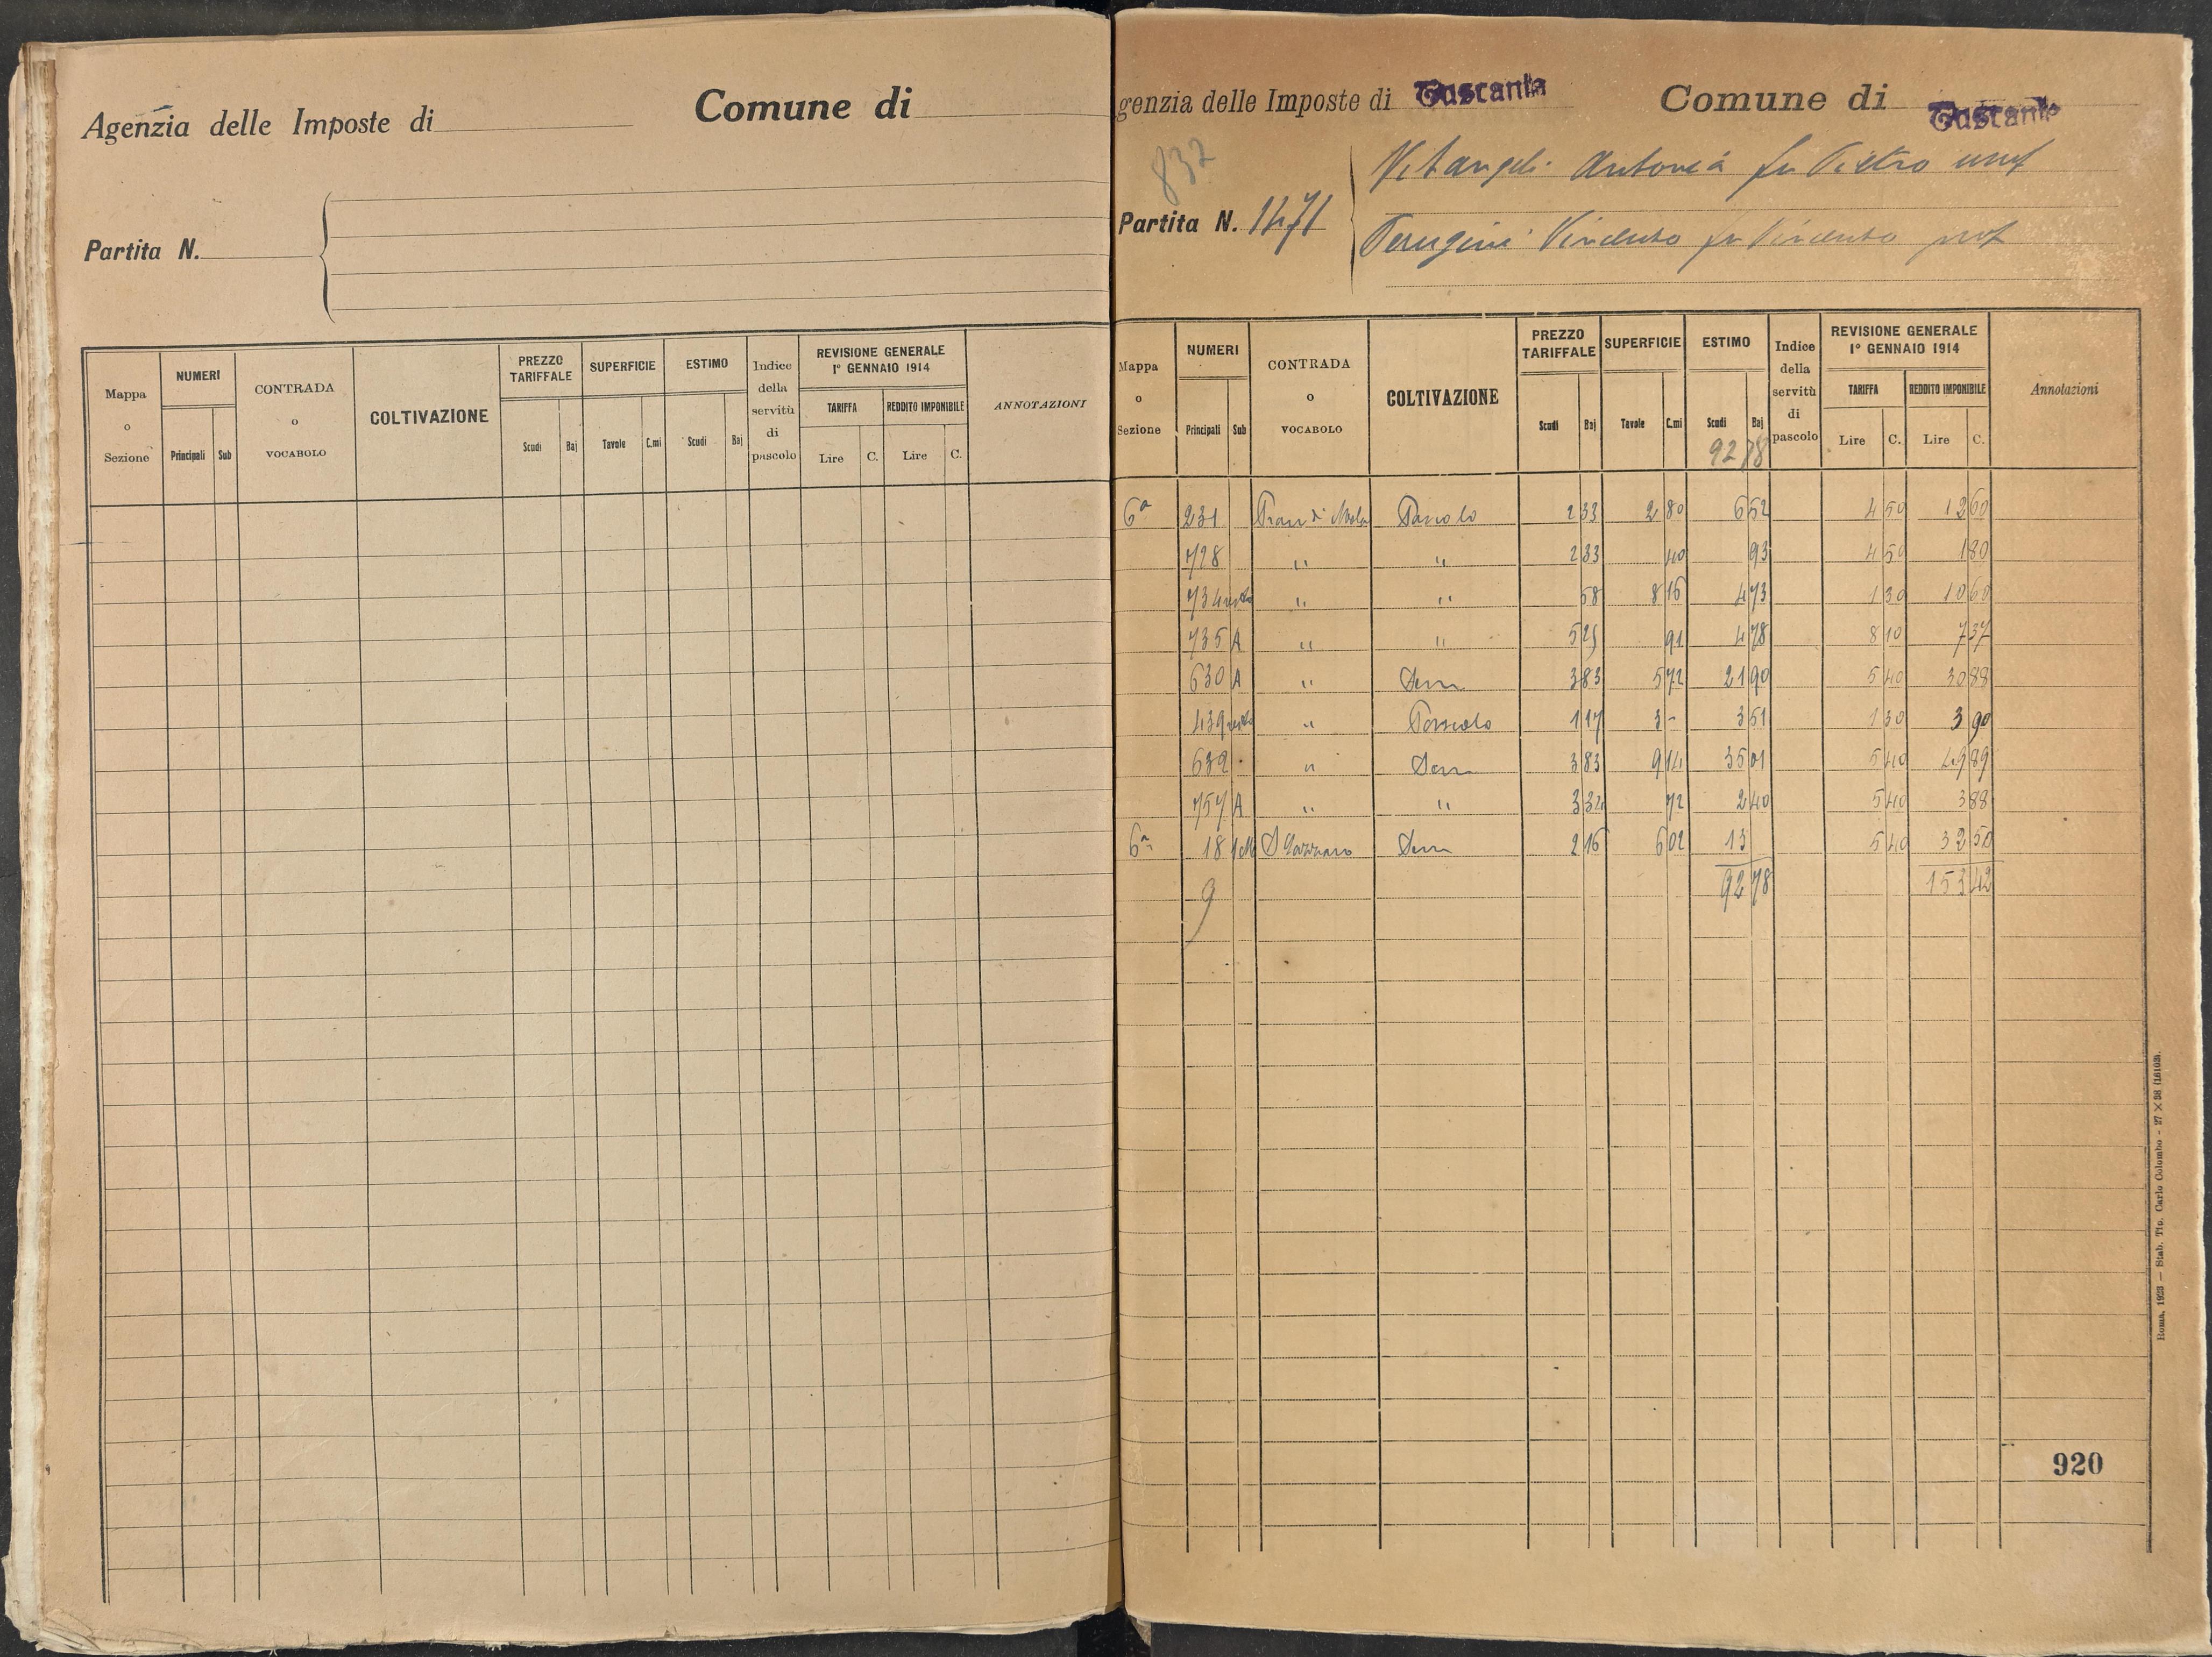 Agenzia delle Imposte di
Comune di
Partita N.
Mappa o Sezione
NUMERI
Principali Sub
CONTRADA o VOCABOLO
COLTIVAZIONE
PREZZO TARIFFALE
Scudi Baj
SUPERFICIE
Tavole C.mi
ESTIMO
Scudi Baj
Indice della servitù di pascolo
REVISIONE GENERALE
1° GENNAIO 1914
TARIFFA
Lire C.
REDDITO IMPONIBILE
Lire C.
ANNOTAZIONI
genzia delle Imposte di Tuscania
Comune di Tuscania
832
Partita N. 1471
Vitangeli Antonia fu Pietro usuf
Perugini Vincenzo fu Vincenzo
Mappa o Sezione
NUMERI
Principali Sub
CONTRADA o VOCABOLO
COLTIVAZIONE
PREZZO TARIFFALE
Scudi Baj
SUPERFICIE
Tavole C.mi
ESTIMO
Scudi Baj
92 78
Indice della servitù di pascolo
REVISIONE GENERALE
1° GENNAIO 1914
TARIFFA
Lire C.
REDDITO IMPONIBILE
Lire C.
Annotazioni
6a 231 Pian di Mola Pascolo 2 33 2 80 6 52 4 50 12 60
728 " " 2 33 40 93 4 50 1 80
734 " " 58 8 16 4 73 1 30 10 60
735 A " " 5 25 91 4 78 8 10 7 37
630 A " Sem 3 83 5 72 21 90 5 40 30 88
439 " Pascolo 1 17 3 - 3 51 1 30 3 90
632 " Sem 3 83 9 14 35 01 5 40 49 89
757 A " " 3 34 72 2 40 5 40 3 88
6a 18 S Lazzaro Sem 2 16 6 02 13 5 40 32 50
9 92 78 153 42
920
Roma, 1923 — Stab. Tip. Carlo Colombo - 27 X 38 (16103).